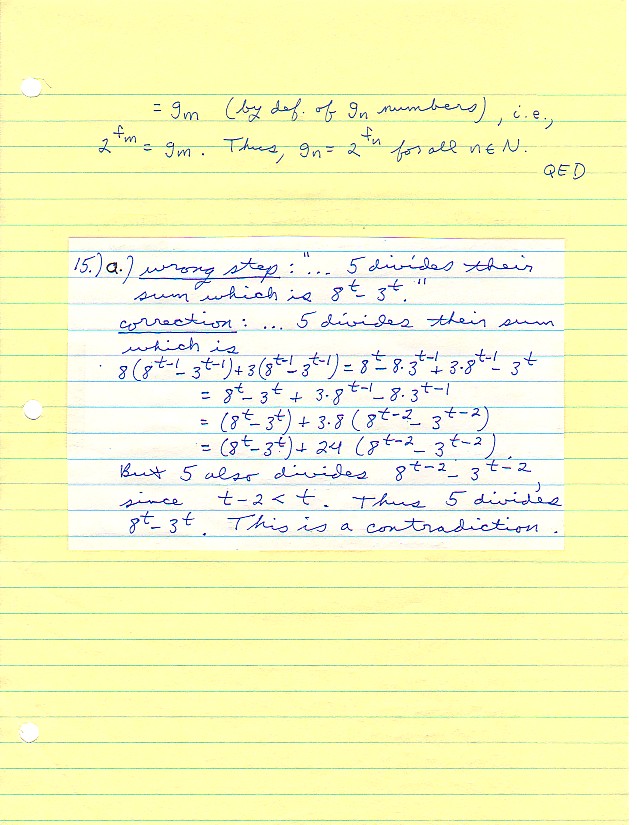 = gₘ (by def. of gₙ numbers), i.e.,
2^fₘ = gₘ. Thus, gₙ = 2^fₙ for all n ∈ N.
QED
15.) a.) wrong step: "... 5 divides their
sum which is 8^t - 3^t."
correction: ... 5 divides their sum
which is
8(8^t-1 - 3^t-1) + 3(8^t-1 - 3^t-1) = 8^t - 8·3^t-1 + 3·8^t-1 - 3^t
= 8^t - 3^t + 3·8^t-1 - 8·3^t-1
= (8^t - 3^t) + 3·8(8^t-2 - 3^t-2)
= (8^t - 3^t) + 24 (8^t-2 - 3^t-2).
But 5 also divides 8^t-2 - 3^t-2,
since t-2 < t. Thus 5 divides
8^t - 3^t. This is a contradiction.